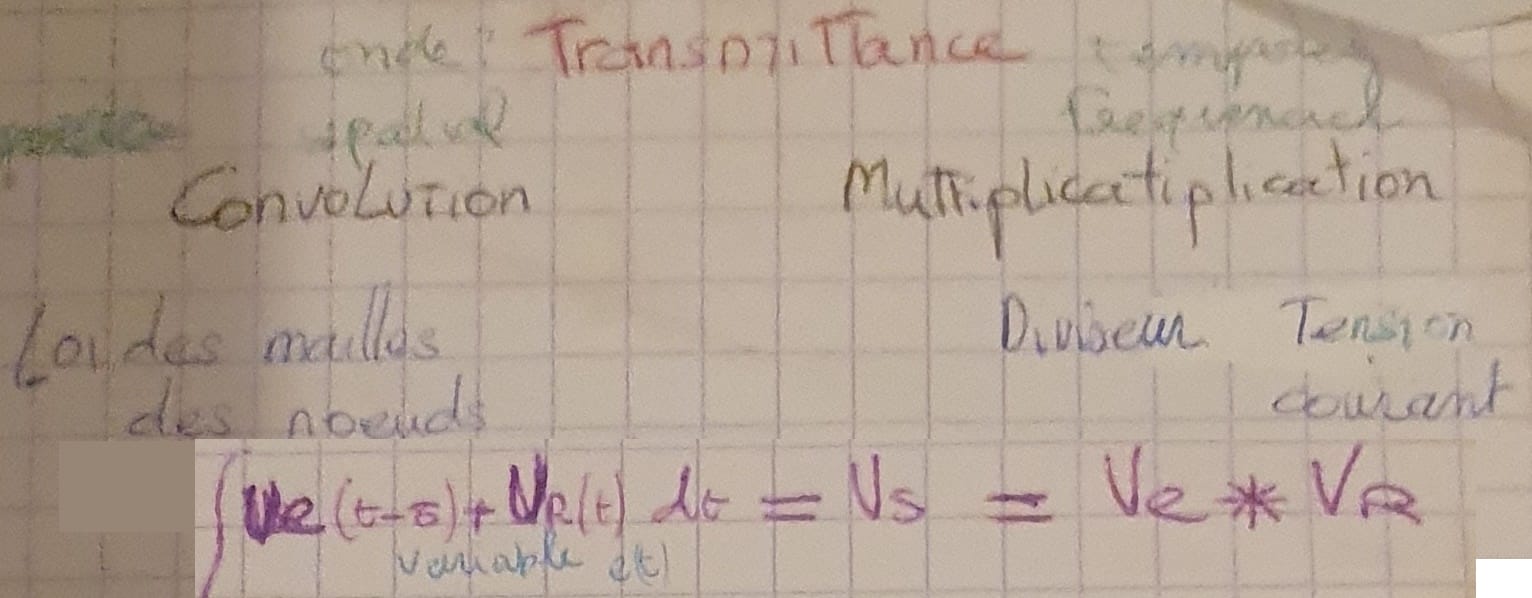 onde: TransmiTTance temporel
spatial frequenciel
ConvoLuTion Multiplicatiplication
Loi des mailles Diviseur Tension
des noeuds courant
∫ Ve(t-5)+VR(t) dt = Vs = Ve * VR
variable